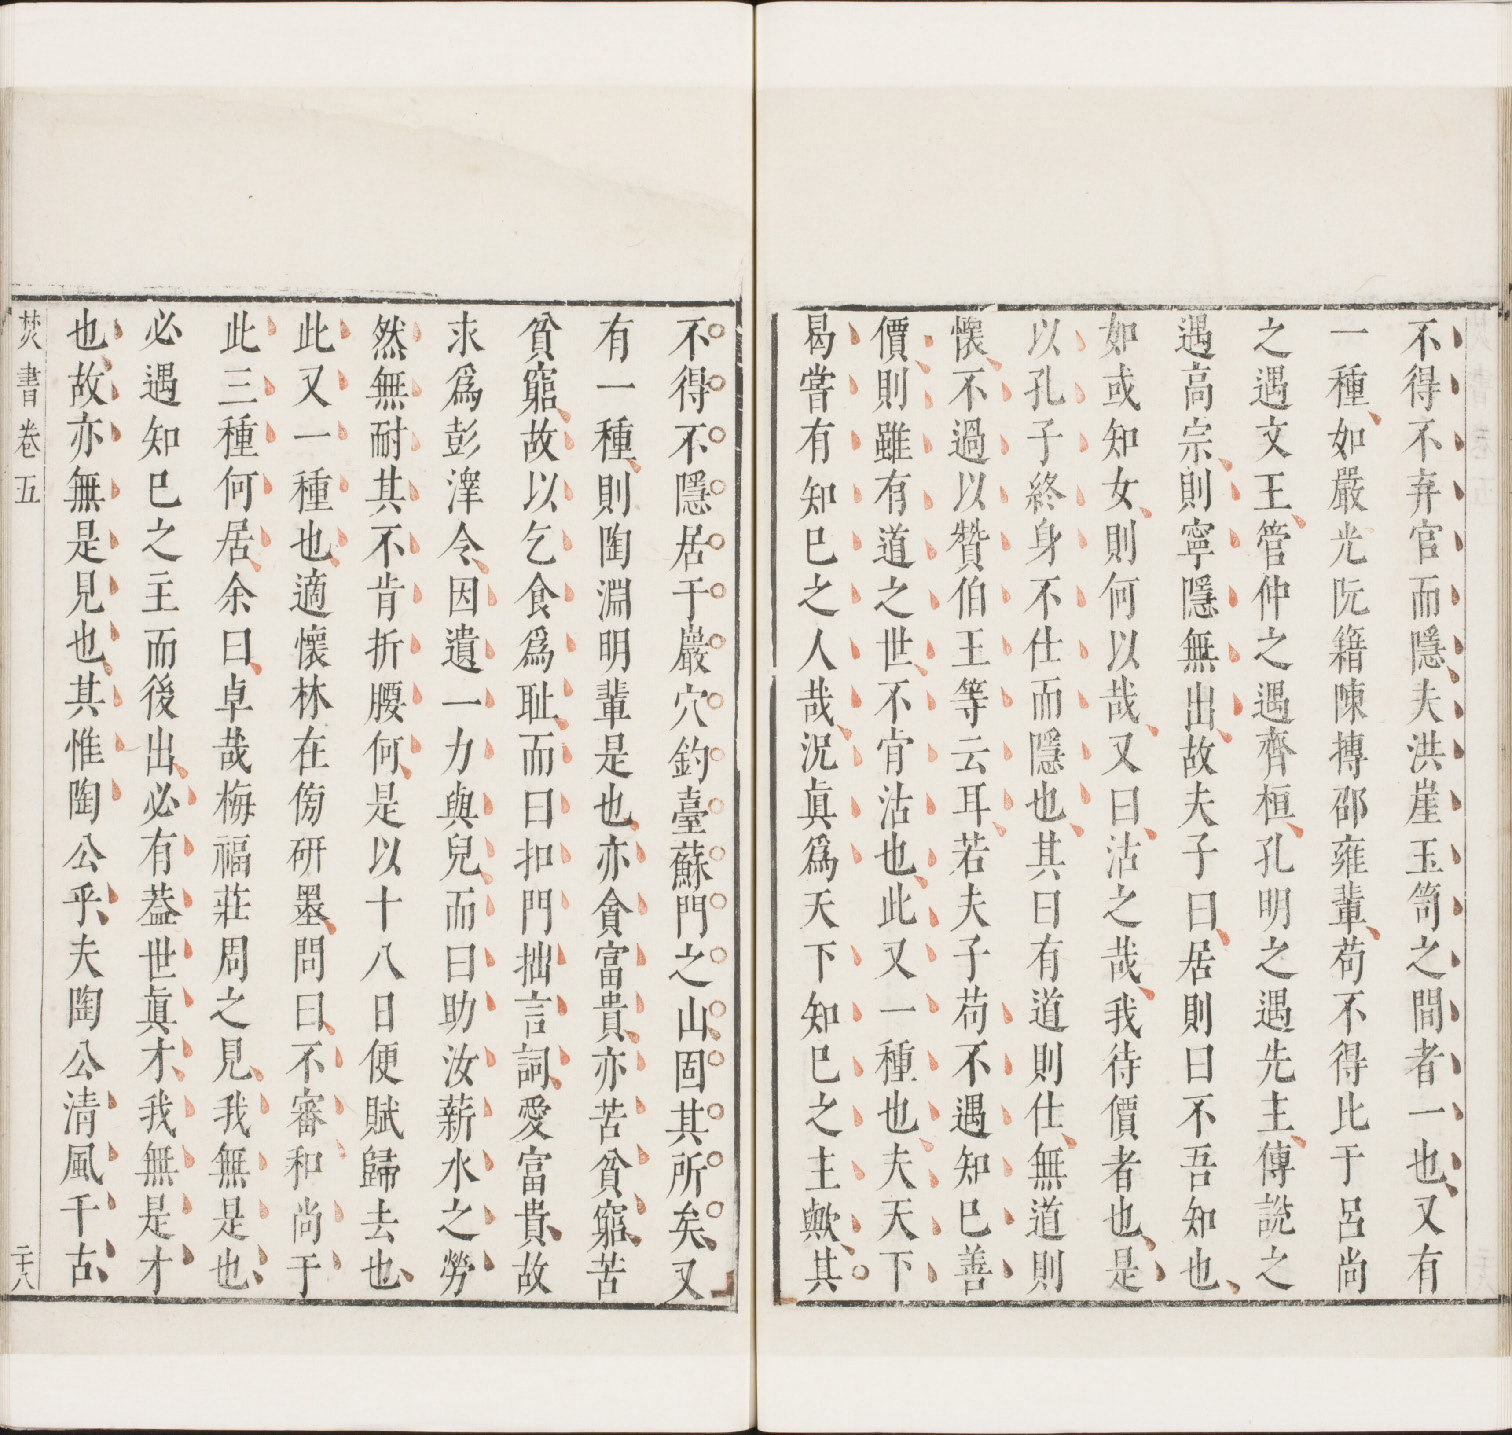 不得不弃官而隱夫洪崖玉笥之間者一也又有
一種如嚴光阮籍陳摶邵雍輩苟不得比于呂尚
之遇文王管仲之遇齊桓孔明之遇先主傅說之
遇高宗則寧隱無出故夫子曰居則曰不吾知也
如或知女則何以哉又曰沽之哉我待價者也是
以孔子終身不仕而隱也其曰有道則仕無道則
懷不過以贊伯王等云耳若夫子苟不遇知巳善
價則雖有道之世不肯沽也此又一種也夫天下
曷嘗有知巳之人哉況眞爲天下知巳之主歟其
不得不隱居于巖穴釣臺蘇門之山固其所矣又
有一種則陶淵明輩是也亦貪富貴亦苦貧窮苦
貧窮故以乞食爲耻而曰扣門拙言詞愛富貴故
求爲彭澤令因遺一力與兒而曰助汝薪水之勞
然無耐其不肯折腰何是以十八日便賦歸去也
此又一種也適懷林在傍研墨問曰不審和尚于
此三種何居余曰卓哉梅福莊周之見我無是也
必遇知巳之主而後出必有葢世眞才我無是才
也故亦無是見也其惟陶公乎夫陶公清風千古
焚書卷五 二十八